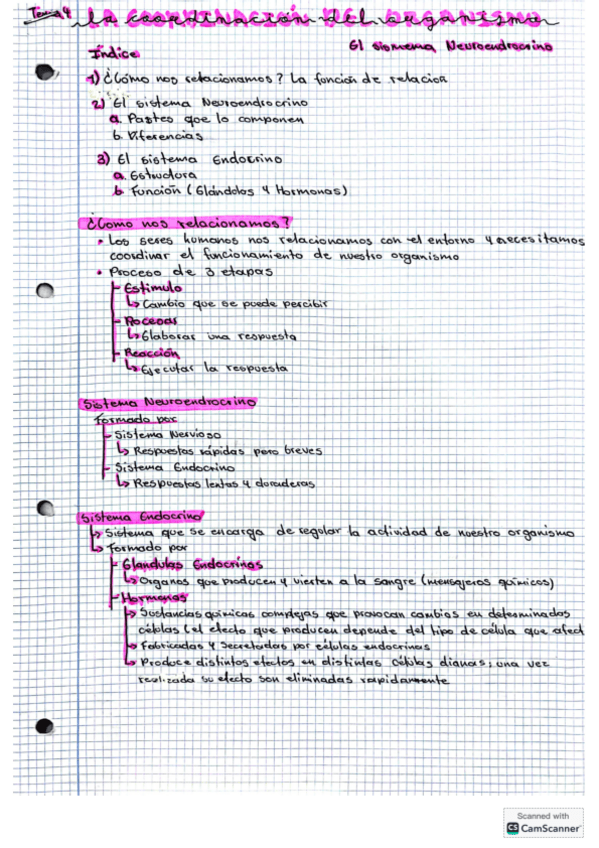 Tema 4 LA COORDINACIÓN del organismo
El sistema Neuroendocrino
Índice
1) ¿Cómo nos relacionamos? La función de relación
2) El sistema Neuroendocrino
a. Partes que lo componen
b. Diferencias
3) El sistema Endocrino
a. Estructura
b. Función (Glándulas y Hormonas)
¿Como nos relacionamos?
• Los seres humanos nos relacionamos con el entorno y necesitamos
coordinar el funcionamiento de nuestro organismo
• Proceso de 3 etapas
- Estimulo
↳ Cambio que se puede percibir
- Procesar
↳ Elaborar una respuesta
- Reacción
↳ Ejecutar la respuesta
Sistema Neuroendocrino
Formado por
- Sistema Nervioso
↳ Respuestas rápidas pero breves
- Sistema Endocrino
↳ Respuestas lentas y duraderas
Sistema Endocrino
↳ Sistema que se encarga de regular la actividad de nuestro organismo
↳ Formado por
- Glandulas Endocrinas
↳ Organos que producen y vierten a la sangre (mensajeros químicos)
- Hormonas
↳ Sustancias químicas complejas que provocan cambios en determinadas
células (el efecto que producen depende del tipo de célula que afect
↳ Fabricadas y Secretadas por células endocrinas
↳ Produce distintos efectos en distintas células dianas, una vez
realizada su efecto son eliminadas rapidamente
Scanned with
CS CamScanner